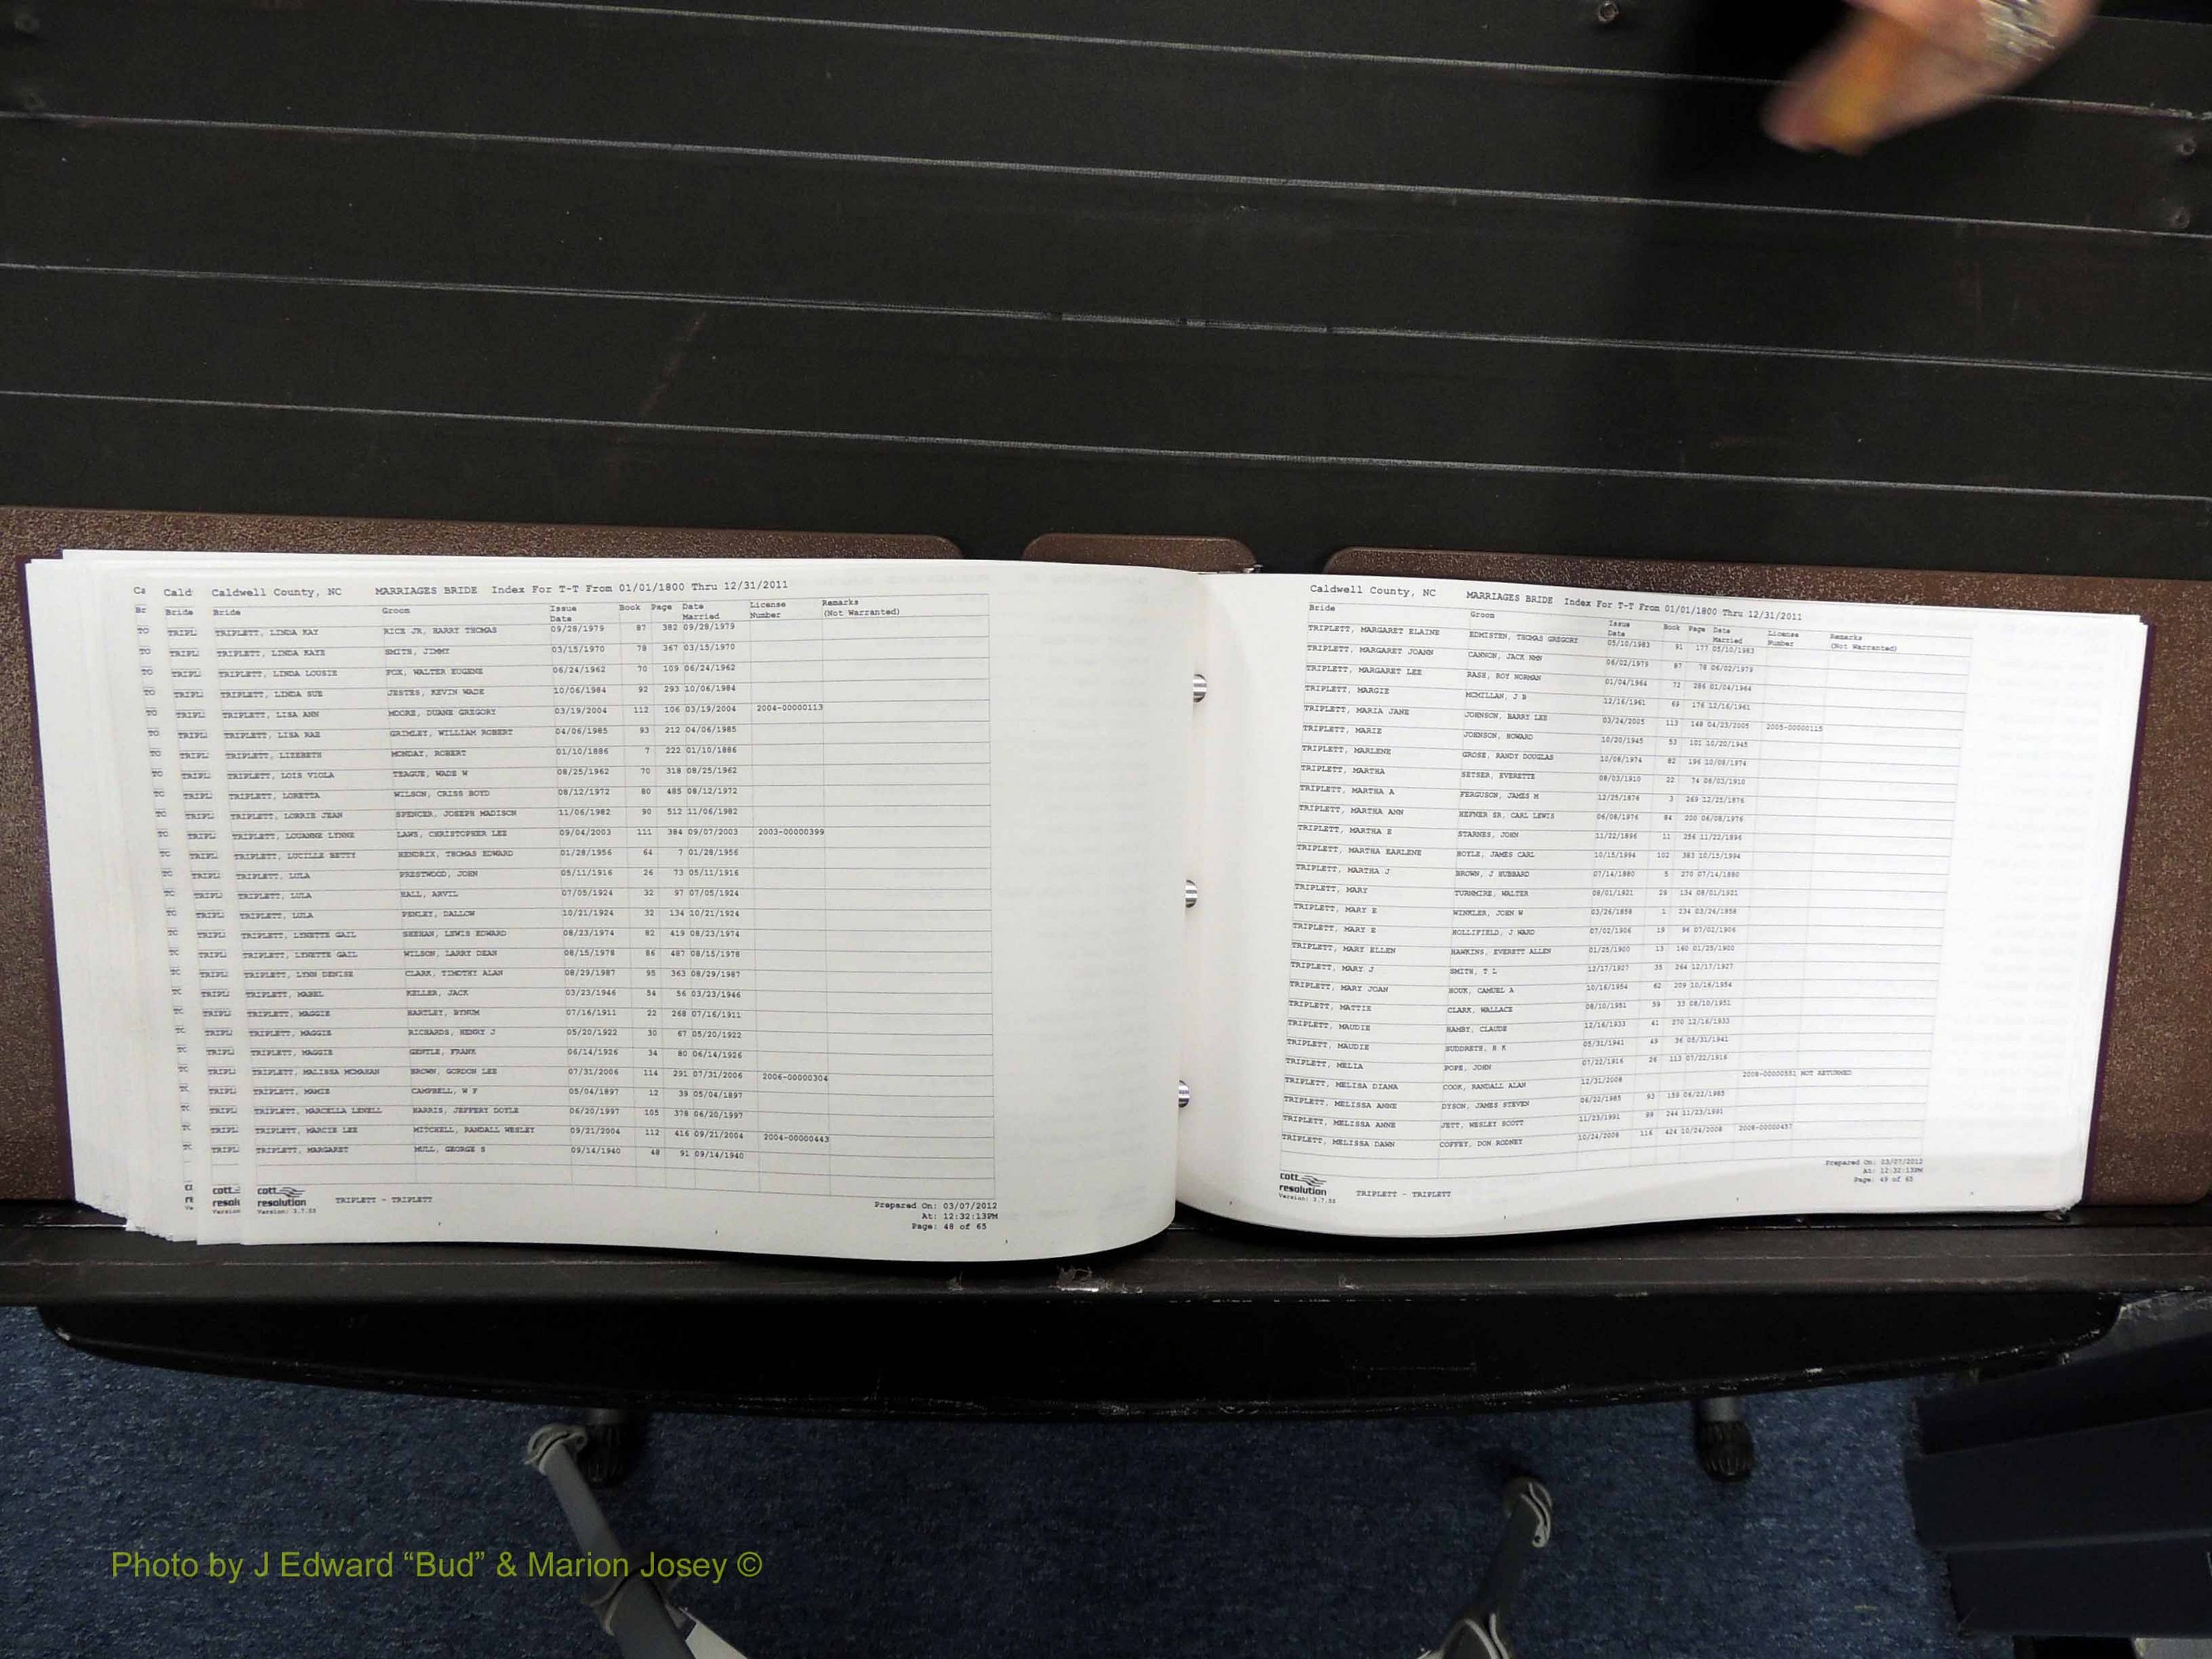 Ca Cald Caldwell County, NC MARRIAGES BRIDE Index For T-T From 01/01/1800 Thru 12/31/2011
Br Bride Bride Groom Issue Date Book Page Date Married License Number Remarks (Not Warranted)
TO TRIPL TRIPLETT, LINDA KAY RICE JR, HARRY THOMAS 09/28/1979 87 382 09/28/1979
TO TRIPL TRIPLETT, LINDA KAYE SMITH, JIMMY 03/15/1970 78 367 03/15/1970
TO TRIPL TRIPLETT, LINDA LOUSIE FOX, WALTER EUGENE 06/24/1962 70 109 06/24/1962
TO TRIPL TRIPLETT, LINDA SUE JESTES, KEVIN WADE 10/06/1984 92 293 10/06/1984
TO TRIPL TRIPLETT, LISA ANN MOORE, DUANE GREGORY 03/19/2004 112 106 03/19/2004 2004-00000113
TO TRIPL TRIPLETT, LISA RAE GRIMLEY, WILLIAM ROBERT 04/06/1985 93 212 04/06/1985
TO TRIPL TRIPLETT, LIZEBETH MONDAY, ROBERT 01/10/1886 7 222 01/10/1886
TO TRIPL TRIPLETT, LOIS VIOLA TEAGUE, WADE W 08/25/1962 70 318 08/25/1962
TO TRIPL TRIPLETT, LORETTA WILSON, CRISS BOYD 08/12/1972 80 485 08/12/1972
TO TRIPL TRIPLETT, LORRIE JEAN SPENCER, JOSEPH MADISON 11/06/1982 90 512 11/06/1982
TO TRIPL TRIPLETT, LOUANNE LYNNE LAWS, CHRISTOPHER LEE 09/04/2003 111 384 09/07/2003 2003-00000399
TO TRIPL TRIPLETT, LUCILLE BETTY HENDRIX, THOMAS EDWARD 01/28/1956 64 7 01/28/1956
TO TRIPL TRIPLETT, LULA PRESTWOOD, JOHN 05/11/1916 26 73 05/11/1916
TC TRIPL TRIPLETT, LULA HALL, ARVIL 07/05/1924 32 97 07/05/1924
TC TRIPL TRIPLETT, LULA PENLEY, DALLOW 10/21/1924 32 134 10/21/1924
TC TRIPL TRIPLETT, LYNETTE GAIL SHEHAN, LEWIS EDWARD 08/23/1974 82 419 08/23/1974
TC TRIPL TRIPLETT, LYNETTE GAIL WILSON, LARRY DEAN 08/15/1978 86 487 08/15/1978
TC TRIPL TRIPLETT, LYNN DENISE CLARK, TIMOTHY ALAN 08/29/1987 95 363 08/29/1987
TC TRIPL TRIPLETT, MABEL KELLER, JACK 03/23/1946 54 56 03/23/1946
TC TRIPL TRIPLETT, MAGGIE HARTLEY, BYNUM 07/16/1911 22 268 07/16/1911
TC TRIPL TRIPLETT, MAGGIE RICHARDS, HENRY J 05/20/1922 30 67 05/20/1922
TC TRIPL TRIPLETT, MAGGIE GENTLE, FRANK 06/14/1926 34 80 06/14/1926
TC TRIPL TRIPLETT, MALISSA MCMAHAN BROWN, GORDON LEE 07/31/2006 114 291 07/31/2006 2006-00000304
TC TRIPL TRIPLETT, MAMIE CAMPBELL, W F 05/04/1897 12 39 05/04/1897
TC TRIPL TRIPLETT, MARCELLA LENELL HARRIS, JEFFERY DOYLE 06/20/1997 105 378 06/20/1997
TC TRIPL TRIPLETT, MARCIE LEE MITCHELL, RANDALL WESLEY 09/21/2004 112 416 09/21/2004 2004-00000443
TC TRIPL TRIPLETT, MARGARET MULL, GEORGE S 09/14/1940 48 91 09/14/1940
cott cott
resolution TRIPLETT - TRIPLETT
Version: 3.7.55
Prepared On: 03/07/2012
At: 12:32:13PM
Page: 48 of 65
Caldwell County, NC MARRIAGES BRIDE Index For T-T From 01/01/1800 Thru 12/31/2011
Bride Groom Issue Date Book Page Date Married License Number Remarks (Not Warranted)
TRIPLETT, MARGARET ELAINE EDMISTEN, THOMAS GREGORY 05/10/1983 91 177 05/10/1983
TRIPLETT, MARGARET JOANN CANNON, JACK NMN 06/02/1979 87 78 06/02/1979
TRIPLETT, MARGARET LEE RASH, ROY NORMAN 01/04/1964 72 286 01/04/1964
TRIPLETT, MARGIE MCMILLAN, J B 12/16/1961 69 176 12/16/1961
TRIPLETT, MARIA JANE JOHNSON, BARRY LEE 03/24/2005 113 148 04/23/2005 2005-00000115
TRIPLETT, MARIE JOHNSON, HOWARD 10/20/1945 53 101 10/20/1945
TRIPLETT, MARLENE GROSE, RANDY DOUGLAS 10/08/1974 82 196 10/08/1974
TRIPLETT, MARTHA SETSER, EVERETTE 08/03/1910 22 74 08/03/1910
TRIPLETT, MARTHA A FERGUSON, JAMES H 12/25/1876 3 269 12/25/1876
TRIPLETT, MARTHA ANN HEFNER SR, CARL LEWIS 06/08/1976 84 200 06/08/1976
TRIPLETT, MARTHA E STARNES, JOHN 11/22/1896 11 256 11/22/1896
TRIPLETT, MARTHA EARLENE BOYLE, JAMES CARL 10/15/1994 102 383 10/15/1994
TRIPLETT, MARTHA J BROWN, J HUBBARD 07/14/1880 5 270 07/14/1880
TRIPLETT, MARY TURNMIRE, WALTER 08/01/1921 29 134 08/01/1921
TRIPLETT, MARY E WINKLER, JOHN W 03/26/1858 1 234 03/26/1858
TRIPLETT, MARY E HOLLIFIELD, J WARD 07/02/1906 19 96 07/02/1906
TRIPLETT, MARY ELLEN HAWKINS, EVERETT ALLEN 01/25/1900 13 160 01/25/1900
TRIPLETT, MARY J SMITH, T L 12/17/1927 35 264 12/17/1927
TRIPLETT, MARY JOAN HOUK, CAMUEL A 10/16/1954 62 209 10/16/1954
TRIPLETT, MATTIE CLARK, WALLACE 08/10/1951 59 33 08/10/1951
TRIPLETT, MAUDIE HAMBY, CLAUDE 12/16/1933 41 270 12/16/1933
TRIPLETT, MAUDIE SUDDRETH, H K 05/31/1941 49 36 05/31/1941
TRIPLETT, MELIA POPE, JOHN 07/22/1916 26 113 07/22/1916
TRIPLETT, MELISA DIANA COOK, RANDALL ALAN 12/31/2008 2008-00000551 NOT RETURNED
TRIPLETT, MELISSA ANNE DYSON, JAMES STEVEN 06/22/1985 93 159 06/22/1985
TRIPLETT, MELISSA ANNE JETT, WESLEY SCOTT 11/23/1991 99 244 11/23/1991
TRIPLETT, MELISSA DAWN COFFEY, DON RODNEY 10/24/2008 116 424 10/24/2008 2008-00000457
cott
resolution TRIPLETT - TRIPLETT
Version: 3.7.55
Prepared On: 03/07/2012
At: 12:32:13PM
Page: 49 of 65
Photo by J Edward “Bud” & Marion Josey ©